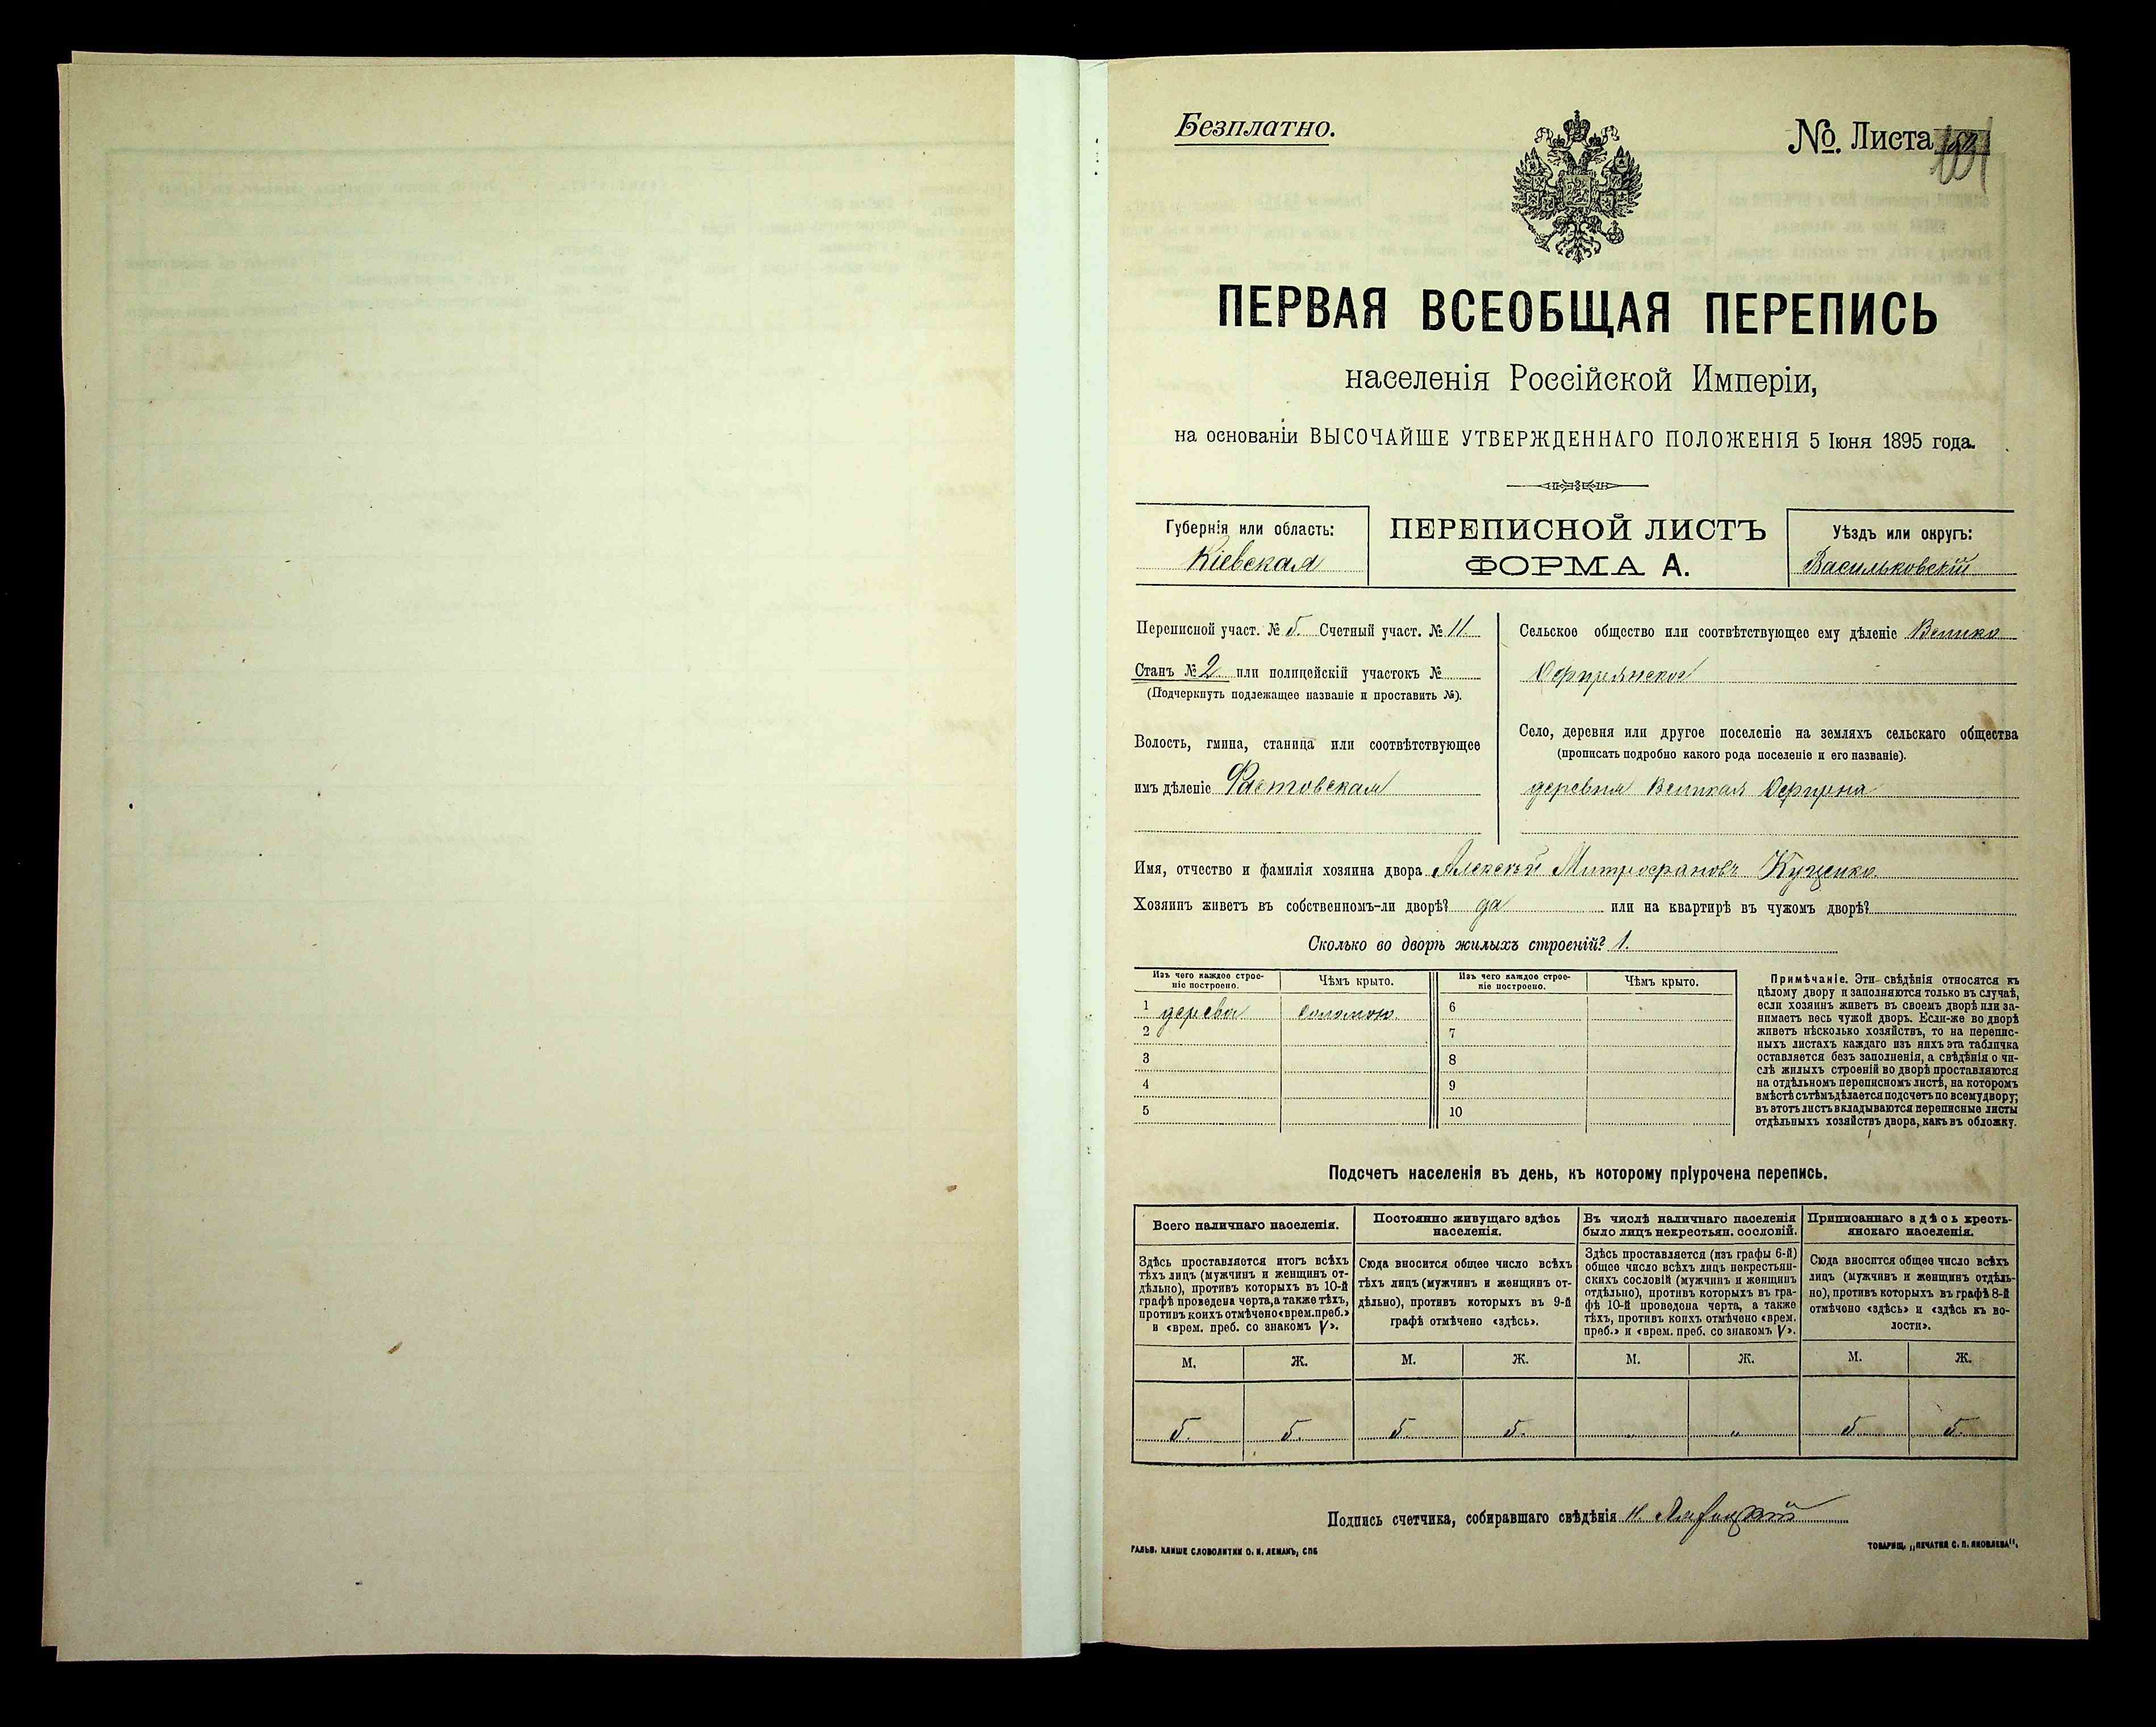 Безплатно.
№. Листа
ПЕРВАЯ ВСЕОБЩАЯ ПЕРЕПИСЬ
населенія Россійской Имперіи,
на основаніи ВЫСОЧАЙШЕ УТВЕРЖДЕННАГО ПОЛОЖЕНІЯ 5 Іюня 1895 года.
Губернія или область:
Кіевская
ПЕРЕПИСНОЙ ЛИСТЪ
ФОРМА А.
Уѣздъ или округъ:
Васильковскій
Переписной участ. № 5. Счетный участ. № 11.
Станъ № 2 или полицейскій участокъ №
(Подчеркнуть подлежащее названіе и проставить №).
Волость, гмина, станица или соотвѣтствующее
имъ дѣленіе Фастовская
Сельское общество или соотвѣтствующее ему дѣленіе Велико
Село, деревня или другое поселеніе на земляхъ сельскаго общества
(прописать подробно какого рода поселеніе и его названіе).
деревня Великая
Имя, отчество и фамилія хозяина двора Алексѣй Митрофановъ Куценко
Хозяинъ живетъ въ собственномъ-ли дворѣ? да или на квартирѣ въ чужомъ дворѣ?
Сколько во дворѣ жилыхъ строеній? 1.
Изъ чего каждое строе-
ніе построено.
Чѣмъ крыто.
Изъ чего каждое строе-
ніе построено.
Чѣмъ крыто.
1 дерева соломою. 6
2 7
3 8
4 9
5 10
Примѣчаніе. Эти свѣдѣнія относятся къ
цѣлому двору и заполняются только въ случаѣ,
если хозяинъ живетъ въ своемъ дворѣ или за-
нимаетъ весь чужой дворъ. Если-же во дворѣ
живетъ нѣсколько хозяйствъ, то на перепис-
ныхъ листахъ каждаго изъ нихъ эта табличка
оставляется безъ заполненія, а свѣдѣнія о чи-
слѣ жилыхъ строеній во дворѣ проставляются
на отдѣльномъ переписномъ листѣ, на которомъ
вмѣстѣ съ тѣмъ дѣлается подсчетъ по всему двору;
въ этотъ листъ вкладываются переписные листы
отдѣльныхъ хозяйствъ двора, какъ въ обложку.
Подсчетъ населенія въ день, къ которому пріурочена перепись.
Всего наличнаго населенія.
Здѣсь проставляется итогъ всѣхъ
тѣхъ лицъ (мужчинъ и женщинъ от-
дѣльно), противъ которыхъ въ 10-й
графѣ проведена черта, а также тѣхъ,
противъ коихъ отмѣчено «врем. преб.»
и «врем. преб. со знакомъ V».
Постоянно живущаго здѣсь
населенія.
Сюда вносится общее число всѣхъ
тѣхъ лицъ (мужчинъ и женщинъ от-
дѣльно), противъ которыхъ въ 9-й
графѣ отмѣчено «здѣсь».
Въ числѣ наличнаго населенія
было лицъ некрестьян. сословій.
Здѣсь проставляется (изъ графы 6-й)
общее число всѣхъ лицъ некрестьян-
скихъ сословій (мужчинъ и женщинъ
отдѣльно), противъ которыхъ въ гра-
фѣ 10-й проведена черта, а также
тѣхъ, противъ коихъ отмѣчено «врем.
преб.» и «врем. преб. со знакомъ V».
Приписаннаго здѣсь кресть-
янскаго населенія.
Сюда вносится общее число всѣхъ
лицъ (мужчинъ и женщинъ отдѣль-
но), противъ которыхъ въ графѣ 8-й
отмѣчено «здѣсь» и «здѣсь къ во-
лости».
М. Ж. М. Ж. М. Ж. М. Ж.
5. 5. 5. 5. " " 5 5.
Подпись счетчика, собиравшаго свѣдѣнія
ГАЛЬВ. КЛИШЕ СЛОВОЛИТНИ О. И. ЛЕМАНЪ, СПБ
ТОВАРИЩ. „ПЕЧАТНЯ С. П. ЯКОВЛЕВА".